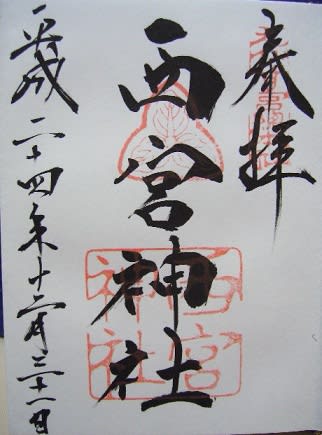 奉拝
西宮神社
西宮神社
平成二十四年十二月三十一日